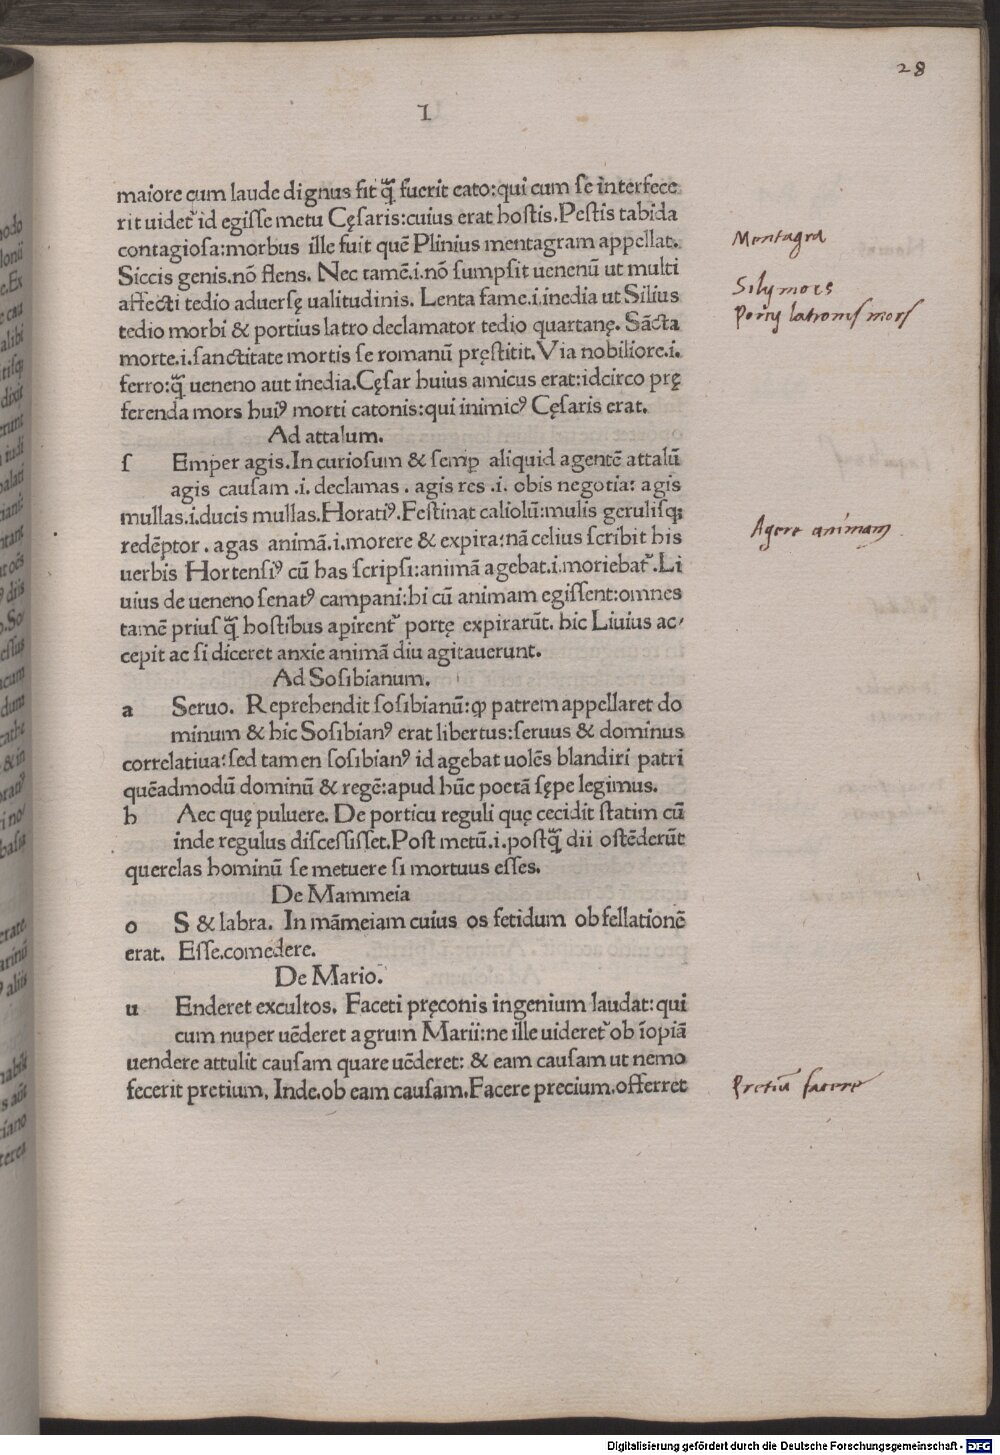 28
I
maiore cum laude dignus sit q̃ fuerit cato:qui cum se interfece
rit uidet᷑ id egisse metu Cęsaris:cuius erat hostis.Pestis tabida
contagiosa:morbus ille fuit quē Plinius mentagram appellat.
Mentagra
Siccis genis.nō flens. Nec tamē.i.nō sumpsit uenenū ut multi
affecti tedio aduersę ualitudinis. Lenta fame.i.inedia ut Silius
Silÿ mors
tedio morbi & portius latro declamator tedio quartanę. Sācta
Porcÿ latronis mors
morte.i.sanctitate mortis se romanū pręstitit.Via nobiliore.i.
ferro:q̃ ueneno aut inedia.Cęsar huius amicus erat:idcirco prę
ferenda mors huiꝰ morti catonis:qui inimicꝰ Cęsaris erat.
Ad attalum.
s Emper agis.In curiosum & semp aliquid agentē attalū
agis causam .i. declamas . agis res .i. obis negotia: agis
mullas.i.ducis mullas.Horatiꝰ.Festinat caliolū:mulis gerulisq;
redēptor . agas animā.i.morere & expira:nā celius scribit his
Agere animam
uerbis Hortensiꝰ cū has scripsi:animā agebat.i.moriebat᷑.Li
uius de ueneno senatꝰ campani:hi cū animam egissent:omnes
tamē prius q̃ hostibus apirent᷑ portę expirarūt. hic Liuius ac/
cepit ac si diceret anxie animā diu agitauerunt.
Ad Sosibianum.
a Seruo. Reprehendit sosibianū:ꝙ patrem appellaret do
minum & hic Sosibianꝰ erat libertus:seruus & dominus
correlatiua:sed tamen sosibianꝰ id agebat uolēs blandiri patri
quēadmodū dominū & regē:apud hūc poetā sępe legimus.
h Aec quę puluere. De porticu reguli quę cecidit statim cū
inde regulus discessisset.Post metū.i.postq̃ dii ostēderūt
querelas hominū se metuere si mortuus esses.
De Mammeia
o S & labra. In māmeiam cuius os fetidum ob fellationē
erat. Esse.comedere.
De Mario.
u Enderet excultos. Faceti pręconis ingenium laudat:qui
cum nuper uēderet agrum Marii:ne ille uideret᷑ ob īopiā
uendere attulit causam quare uēderet: & eam causam ut nemo
fecerit pretium. Inde.ob eam causam.Facere precium.offerret
Pretiū facere
Digitalisierung gefördert durch die Deutsche Forschungsgemeinschaft - DFG